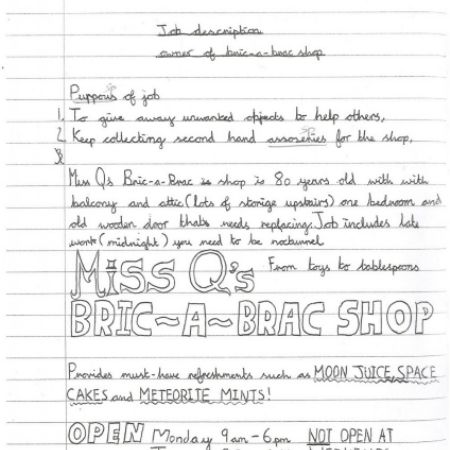 Job description
owner of bric-a-brac shop
Puppous of job
1. To give away unwanted objects to help others,
2. Keep collecting second hand assoseries for the shop,
3
Miss Qs Bric-a-Brac is shop is 80 years old with with
balcony and attic (lots of storige upstairs) one bedroom and
old wooden door thats needs replacing. Job includes late
work (midnight) you need to be nocturnel
Miss Q's From toys to tablespoons
BRIC~A~BRAC SHOP
Provides must-have refreshments such as MOON JUICE, SPACE
CAKES and METEORITE MINTS!
OPEN Monday 9am-6pm NOT OPEN AT